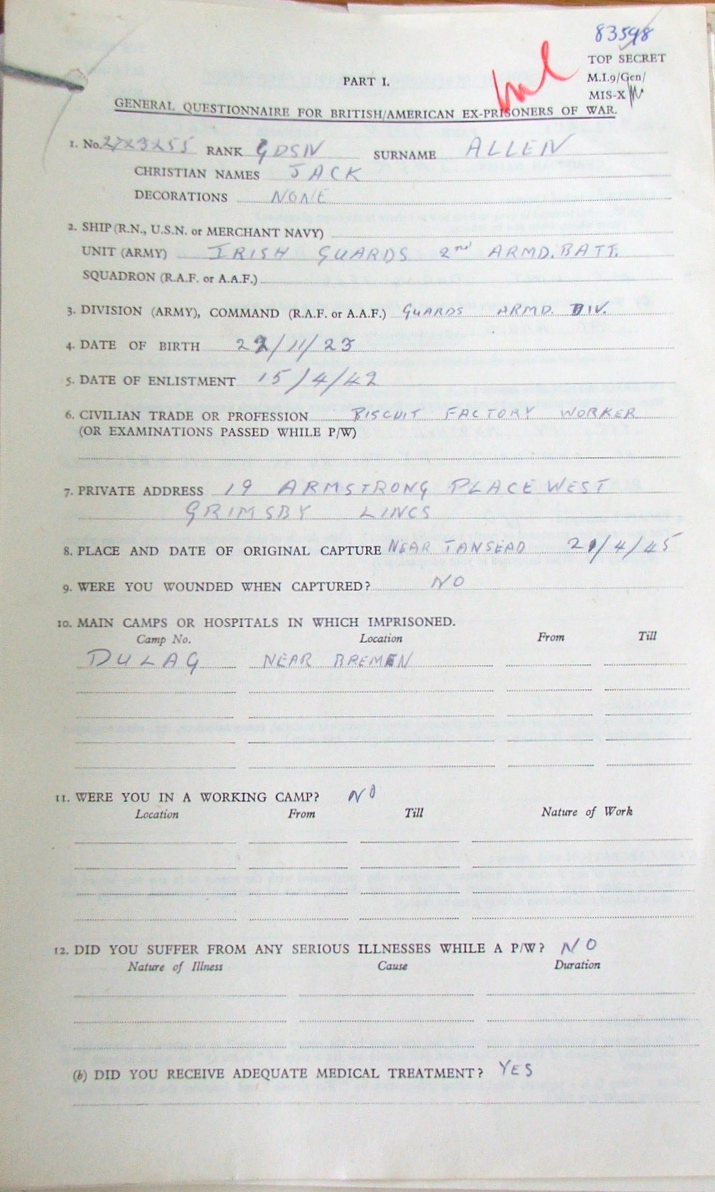 83598
TOP SECRET
PART I.
M.I.9/Gen/
MIS-X
GENERAL QUESTIONNAIRE FOR BRITISH/AMERICAN EX-PRISONERS OF WAR.
1. No. 2723255 RANK GDSN SURNAME ALLEN
CHRISTIAN NAMES JACK
DECORATIONS NONE
2. SHIP (R.N., U.S.N. or MERCHANT NAVY)
UNIT (ARMY) IRISH GUARDS 2nd ARMD. BATT.
SQUADRON (R.A.F. or A.A.F.)
3. DIVISION (ARMY), COMMAND (R.A.F. or A.A.F.) GUARDS ARMD. DIV.
4. DATE OF BIRTH 22/11/23
5. DATE OF ENLISTMENT 15/4/42
6. CIVILIAN TRADE OR PROFESSION BISCUIT FACTORY WORKER
(OR EXAMINATIONS PASSED WHILE P/W)
7. PRIVATE ADDRESS 19 ARMSTRONG PLACE WEST
GRIMSBY LINCS
8. PLACE AND DATE OF ORIGINAL CAPTURE NEAR TANSEAD 21/4/45
9. WERE YOU WOUNDED WHEN CAPTURED? NO
10. MAIN CAMPS OR HOSPITALS IN WHICH IMPRISONED.
Camp No. Location From Till
DULAG NEAR BREMEN
11. WERE YOU IN A WORKING CAMP? NO
Location From Till Nature of Work
12. DID YOU SUFFER FROM ANY SERIOUS ILLNESSES WHILE A P/W? NO
Nature of Illness Cause Duration
(b) DID YOU RECEIVE ADEQUATE MEDICAL TREATMENT? YES